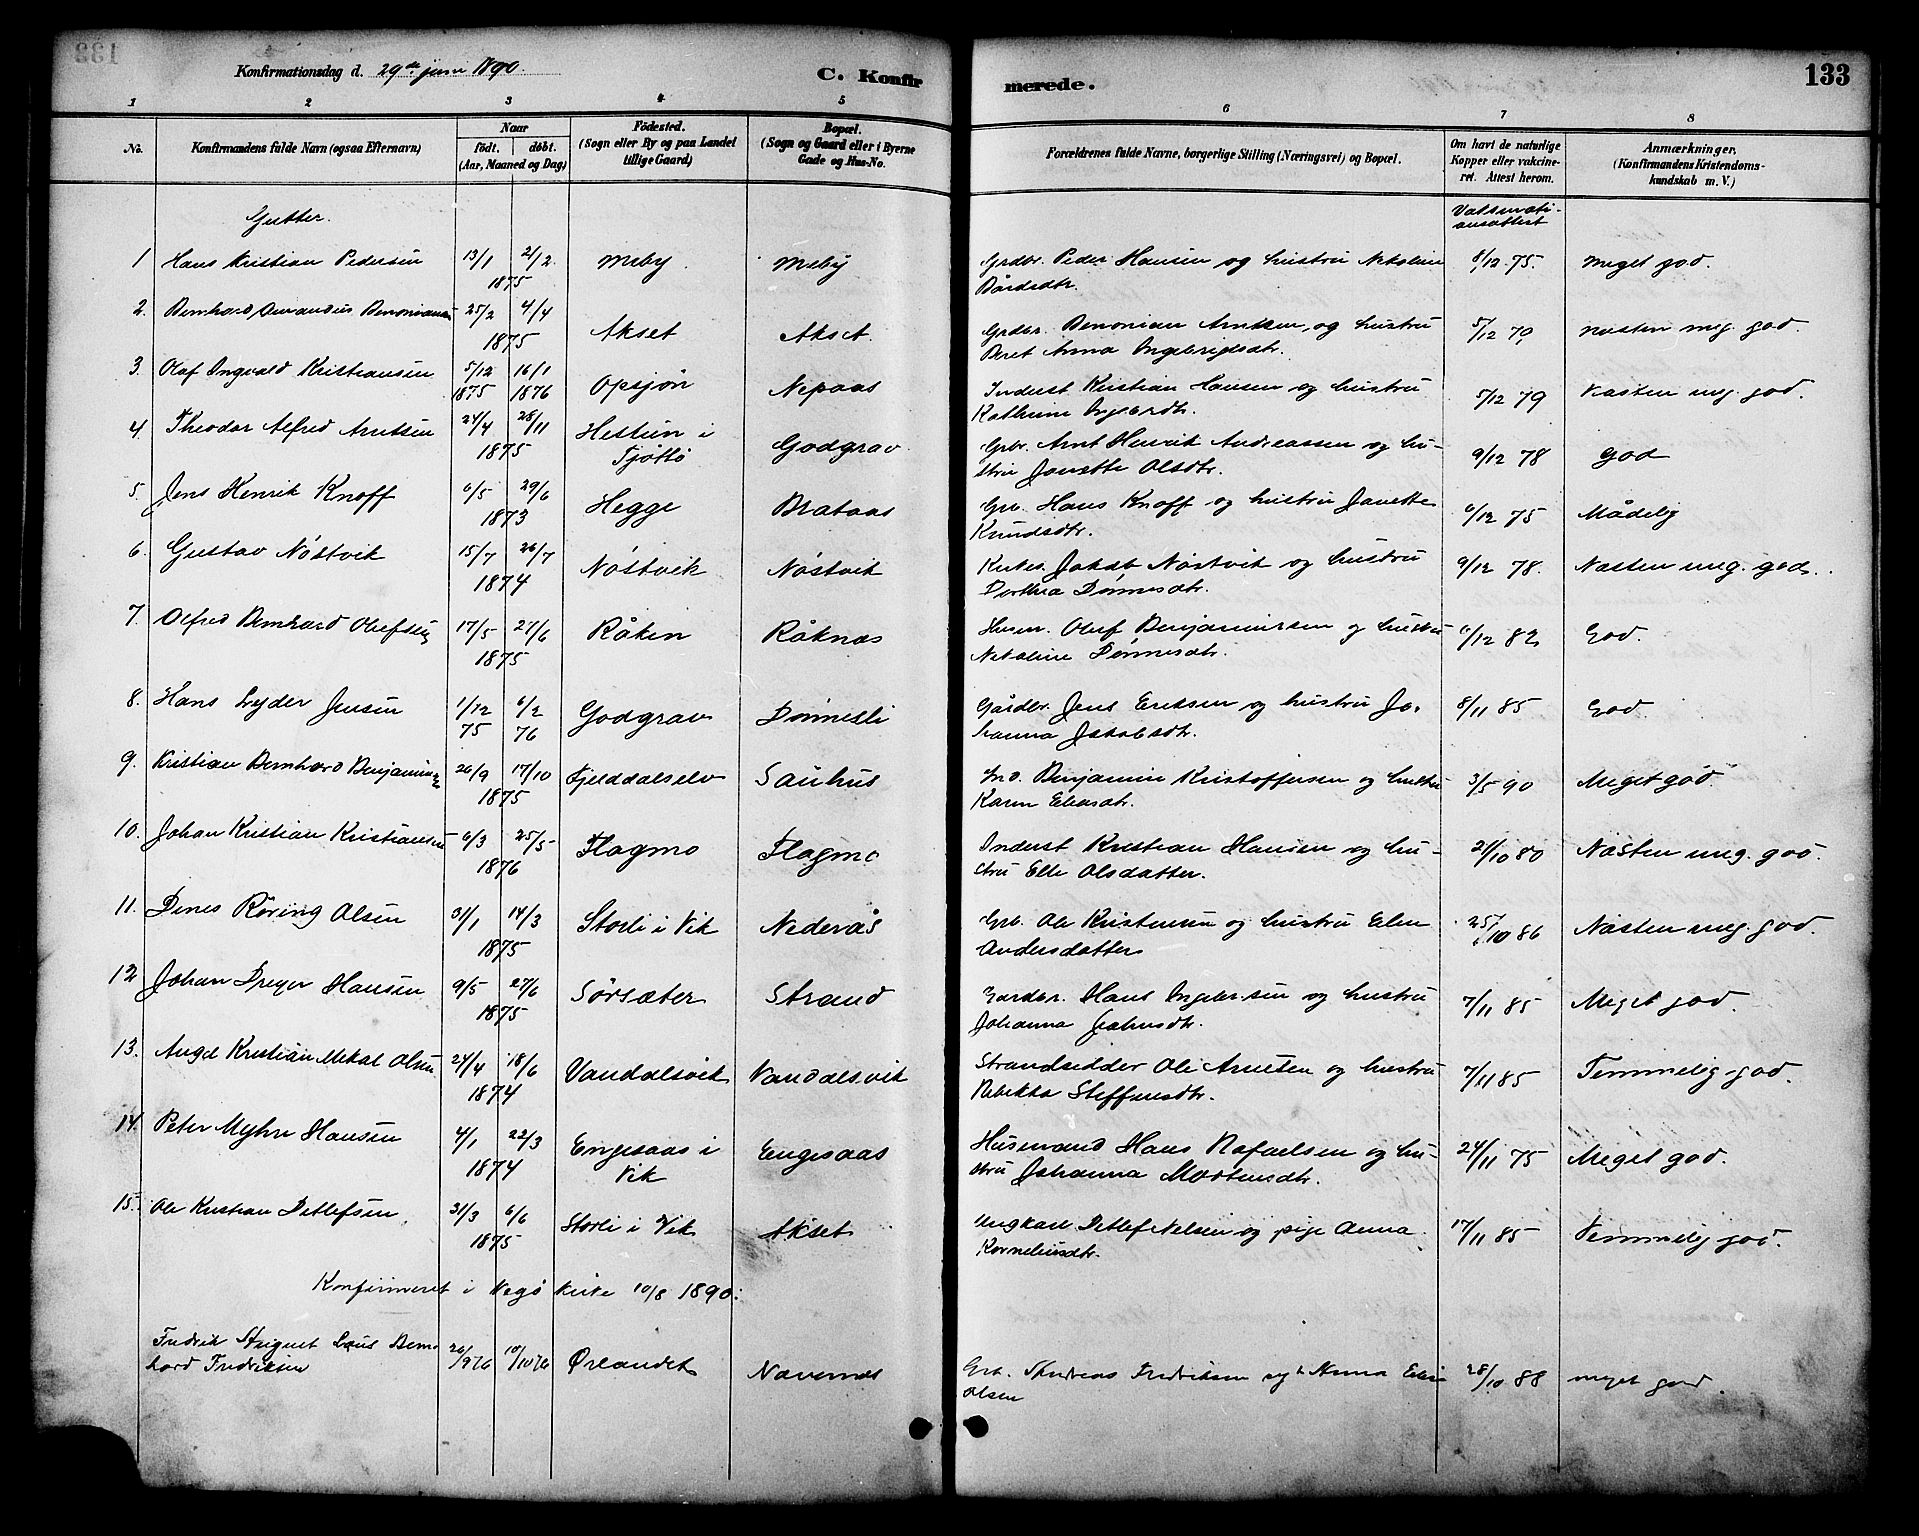 Konfirmationsdag d. 29de juni 1890.
C. Konfirmerede.
133
1 2 3 4 5 6 7 8
No.
Konfirmandens fulde Navn (ogsaa Efternavn)
Naar
födt. döbt.
(Aar, Maaned og Dag)
Födested.
(Sogn eller By og paa Landet
tillige Gaard)
Bopæl.
(Sogn og Gaard eller i Byerne
Gade og Hus-No.
Forældrenes fulde Navne, borgerlige Stilling (Næringsvei) og Bopæl.
Om havt de naturlige
Kopper eller vakcine-
ret. Attest herom.
Anmærkninger,
(Konfirmandens Kristendoms-
kundskab m. V.)
Gutter.
Vaksinati-
onsattest
1 Hans Kristian Pedersen 13/1 21/2 Meby Meby Grdbr. Peder Hansen og hustru Nikoline 8/12 75. Meget god.
1875 Bårdsdtr.
2. Bernhard Amandus Benoniansen 25/2 4/4 Akset Akset Grdbr. Benonian Arntsen og hustru 5/12 79 næsten meg. god.
1875 Beret Anna Ingebrigdsdtr.
3. Olaf Ingvald Kristiansen 5/12 16/1 Opsjøn Nepaas Inderst Kristian Hansen og hustru 5/12 79 Næsten meg. god.
1875 1876 Kathrine
4. Theodor Alfred Arntsen 24/4 28/11 Hestun i Godgrav Grbr. Arnt Henrik Andreassen og hu- 9/12 78 God
1875 Tjøttø stru Janette Olsdtr.
5. Jens Henrik Knoff 6/5 29/6 Hegge Brataas Grb. Hans Knoff og hustru Janette 6/12 75 Mådelig
1873 Knudsdtr.
6. Gustav Nøstvik 15/7 26/7 Nøstvik Nøstvik Jakob Nøstvik og hustru 9/12 78. Næsten meg. god.
1874 Dorthea Dønnesdtr.
7. Alfred Bernhard Olufsen 17/5 27/6 Råken Råknæs Husm. Oluf Benjaminsen og hustru 6/12 82 God.
1875 Nikoline Dønnesdtr.
8. Hans Lyder Jensen 1/12 6/2 Godgrav Dønnesli Gårdbr. Jens Eriksen og hustru Jo- 8/11 85 God
75 76 hanna Jakobsdtr.
9. Kristian Bernhard Benjaminsen 26/9 17/10 Fjelddalselv Sauhus Ind. Benjamin Kristoffersen og hustru 3/5 90 Meget god.
1875 Karen Eliasdtr.
10. Johan Kristian Kristiansen 6/3 25/5 Flagmo Flagmo Inderst Kristian Hansen og hu- 21/10 80 Næsten meg. god.
1876 stru Elle Olsdatter.
11. Dines Røring Olsen 31/1 14/3 Storli i Vik Nederås Grb. Ole Kristensen og hustru Elen 25/10 86 Næsten meg. god.
1875 Andersdatter
12 Johan Dreyer Hansen 9/5 27/6 Sørsæter Strand Gardbr. Hans Ingebrigtsen og hustru 7/11 85 Meget god.
1875 Johanna Johnsdtr.
13. Angel Kristian Mikal Olsen 24/4 18/6 Vandalsvik Vandalsvik Strandsidder Ole Arntsen og hustru 7/11 85 Temmelig god.
1874 Rebekka Steffensdtr.
14. Peter Myhre Hansen 4/1 22/3 Engesaas i Engesaas Husmand Hans Rafaelsen og hu- 24/11 75 Meget god.
1874 Vik stru Johanna Mortensdtr.
15. Ole Kristian Detlefsen 31/3 6/6 Storli i Vik Akset Ungkarl Detlef Nilsen og pige Anna 17/11 85 Temmelig god.
1875 Korneliusdtr.
Konfirmeret i Vegø kirke 10/8 1890.
Fredrik August Laus Bern- 26/9 76 10/10 76 Ørlandet Navernæs Grb. Andreas Fredriksen og h. Anna 28/10 88 meget god.
hard Fredriksen Olsen